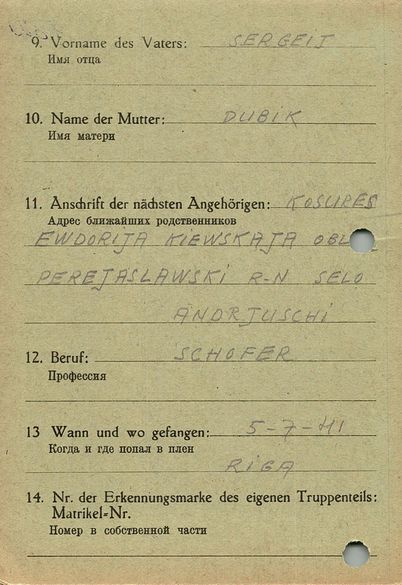 9. Vorname des Vaters: SERGEIJ
Имя отца
10. Name der Mutter: DUBIK
Имя матери
11. Anschrift der nächsten Angehörigen: KOSURES
Адрес ближайших родственников
EWDORIJA KIEWSKAJA OBL
PEREJASLAWSKI R-N SELO
ANDRJUSCHI
12. Beruf: SCHOFER
Профессия
13 Wann und wo gefangen: 5-7-41
Когда и где попал в плен
RIGA
14. Nr. der Erkennungsmarke des eigenen Truppenteils:
Matrikel-Nr.
Номер в собственной части